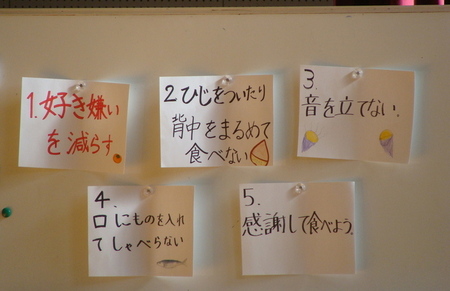 1.好き嫌い
を減らす
2 ひじをついたり
背中をまるめて
食べない
3.
音を立てない.
4.
口にものを入れ
てしゃべらない
5.
感謝して食べよう.